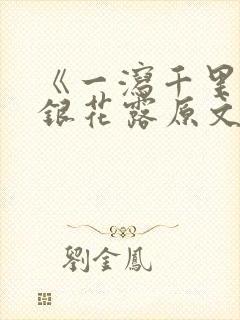 《一瀉千里
銀花露原文
劉金鳳